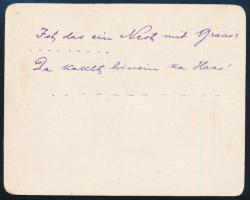 Ist das ein Nest mit Graas?
Da kaklt hinein ka Haas!